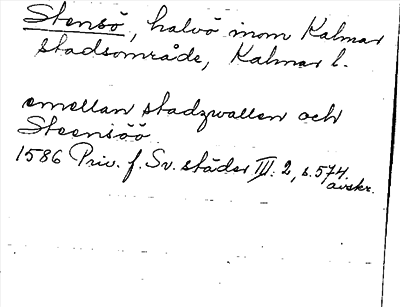 Stensö, halvö inom Kalmar
stadsområde, Kalmar l.
emellan stadzwallen och
Steensöö
1586 Priv. f. Sv. städer III: 2, s. 574.
avskr.